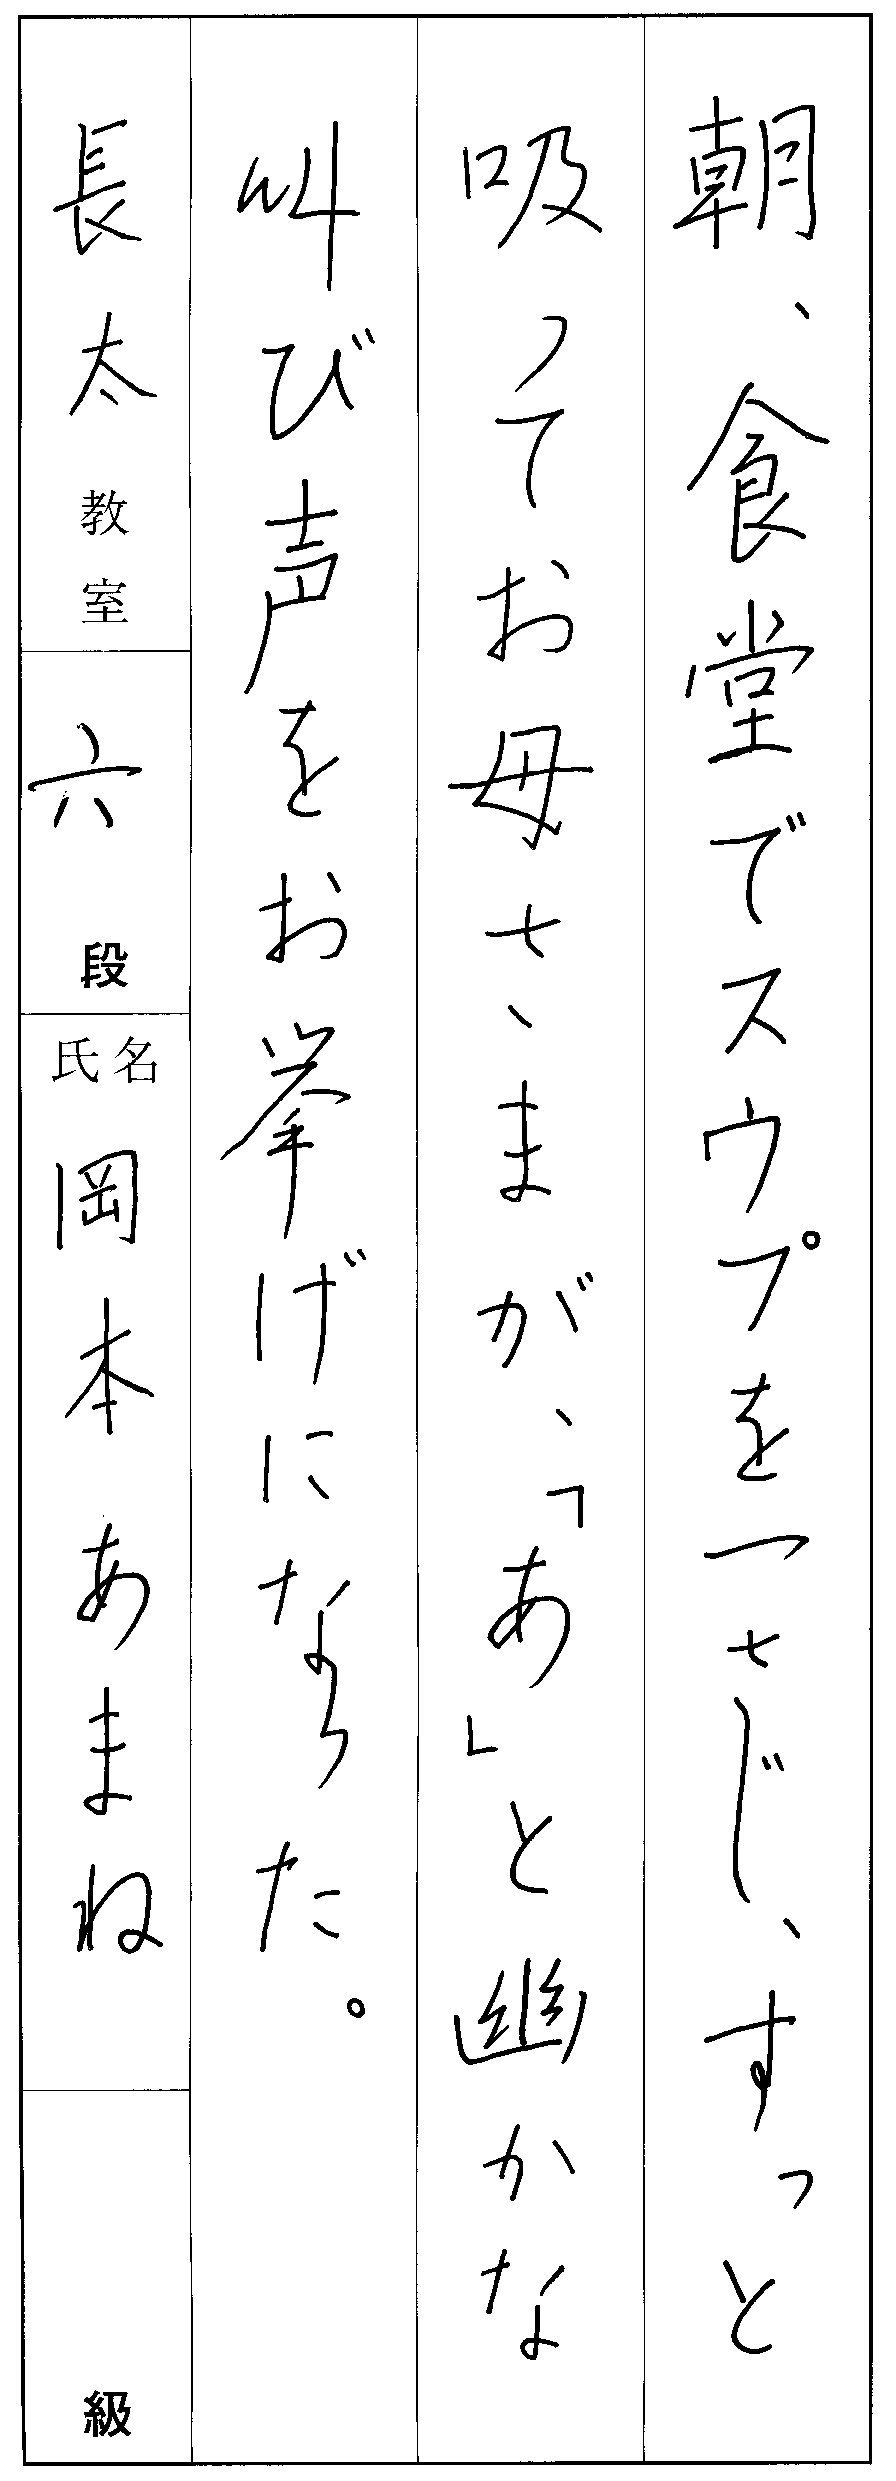 朝、食堂でスウプを一さじ、すっと
吸ってお母さまが、「あ」と幽かな
叫び声をお挙げになった。
長太教室
六段
氏名 岡本あまね
級